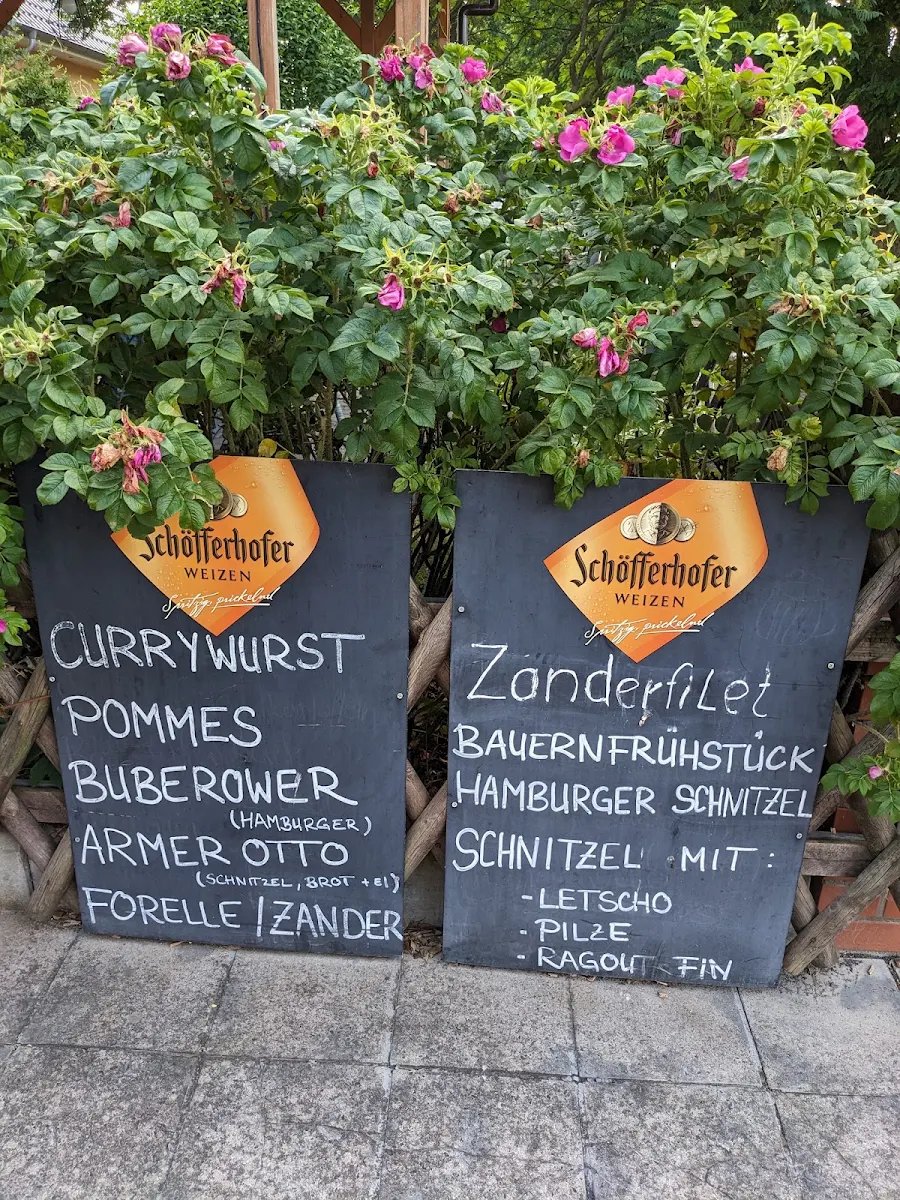 Schöfferhofer
WEIZEN
Spritzig prickelnd
CURRYWURST
POMMES
BUBEROWER
(HAMBURGER)
ARMER OTTO
(SCHNITZEL, BROT + EI)
FORELLE / ZANDER
Schöfferhofer
WEIZEN
Spritzig prickelnd
ZanderfiLet
BAUERNFRÜHSTÜCK
HAMBURGER SCHNITZEL
SCHNITZEL MIT :
- LETSCHO
- PILZE
- RAGOUT FIN